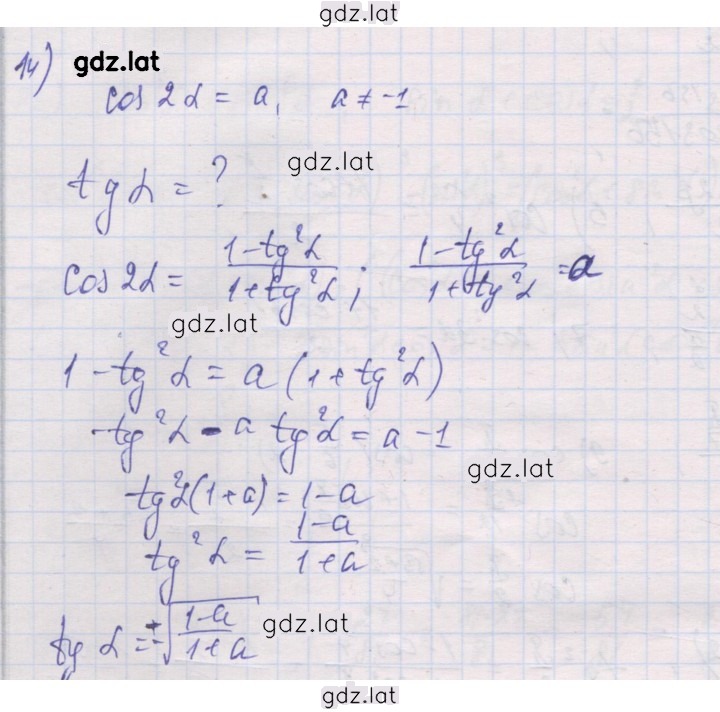 gdz.lat
14) gdz.lat
cos 2α = a, a ≠ -1
tg α = ? gdz.lat
cos 2α = (1 - tg²α)/(1 + tg²α); (1 - tg²α)/(1 + tg²α) = a
gdz.lat
1 - tg²α = a (1 + tg²α)
-tg²α - a tg²α = a - 1
gdz.lat
tg²α(1 + a) = 1 - a
tg²α = (1 - a)/(1 + a)
tg α = ±√((1 - a)/(1 + a)) gdz.lat
gdz.lat